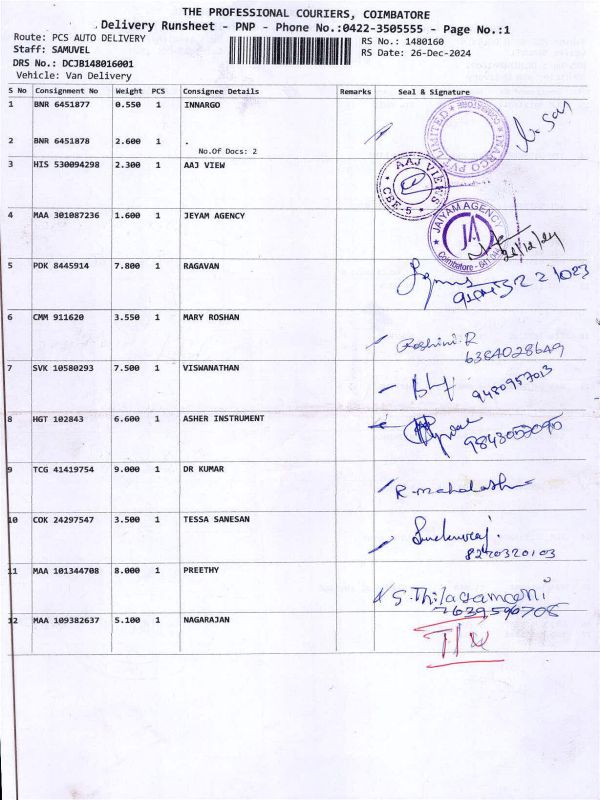 THE PROFESSIONAL COURIERS, COIMBATORE
Delivery Runsheet - PNP - Phone No.:0422-3505555 - Page No.:1
Route: PCS AUTO DELIVERY
RS No.: 1480160
Staff: SAMUVEL
RS Date: 26-Dec-2024
DRS No.: DCJB148016001
Vehicle: Van Delivery
S No Consignment No Weight PCS Consignee Details Remarks Seal & Signature
1 BNR 6451877 0.550 1 INNARGO
2 BNR 6451878 2.600 1 .
No.Of Docs: 2
3 HIS 530094298 2.300 1 AAJ VIEW
AAJ VIEWS
CBE-5
4 MAA 301087236 1.600 1 JEYAM AGENCY
JAIYAM AGENCY
JA
Coimbatore - 641
26/12/24
5 PDK 8445914 7.800 1 RAGAVAN
6 CMM 911620 3.550 1 MARY ROSHAN
Roshini.R
6384028649
7 SVK 10580293 7.500 1 VISWANATHAN
9480957013
8 HGT 102843 6.600 1 ASHER INSTRUMENT
9843053090
9 TCG 41419754 9.000 1 DR KUMAR
R-mahalash
10 COK 24297547 3.500 1 TESSA SANESAN
8220320103
11 MAA 101344708 8.000 1 PREETHY
S.Thilagamani
7639596708
12 MAA 109382637 5.100 1 NAGARAJAN